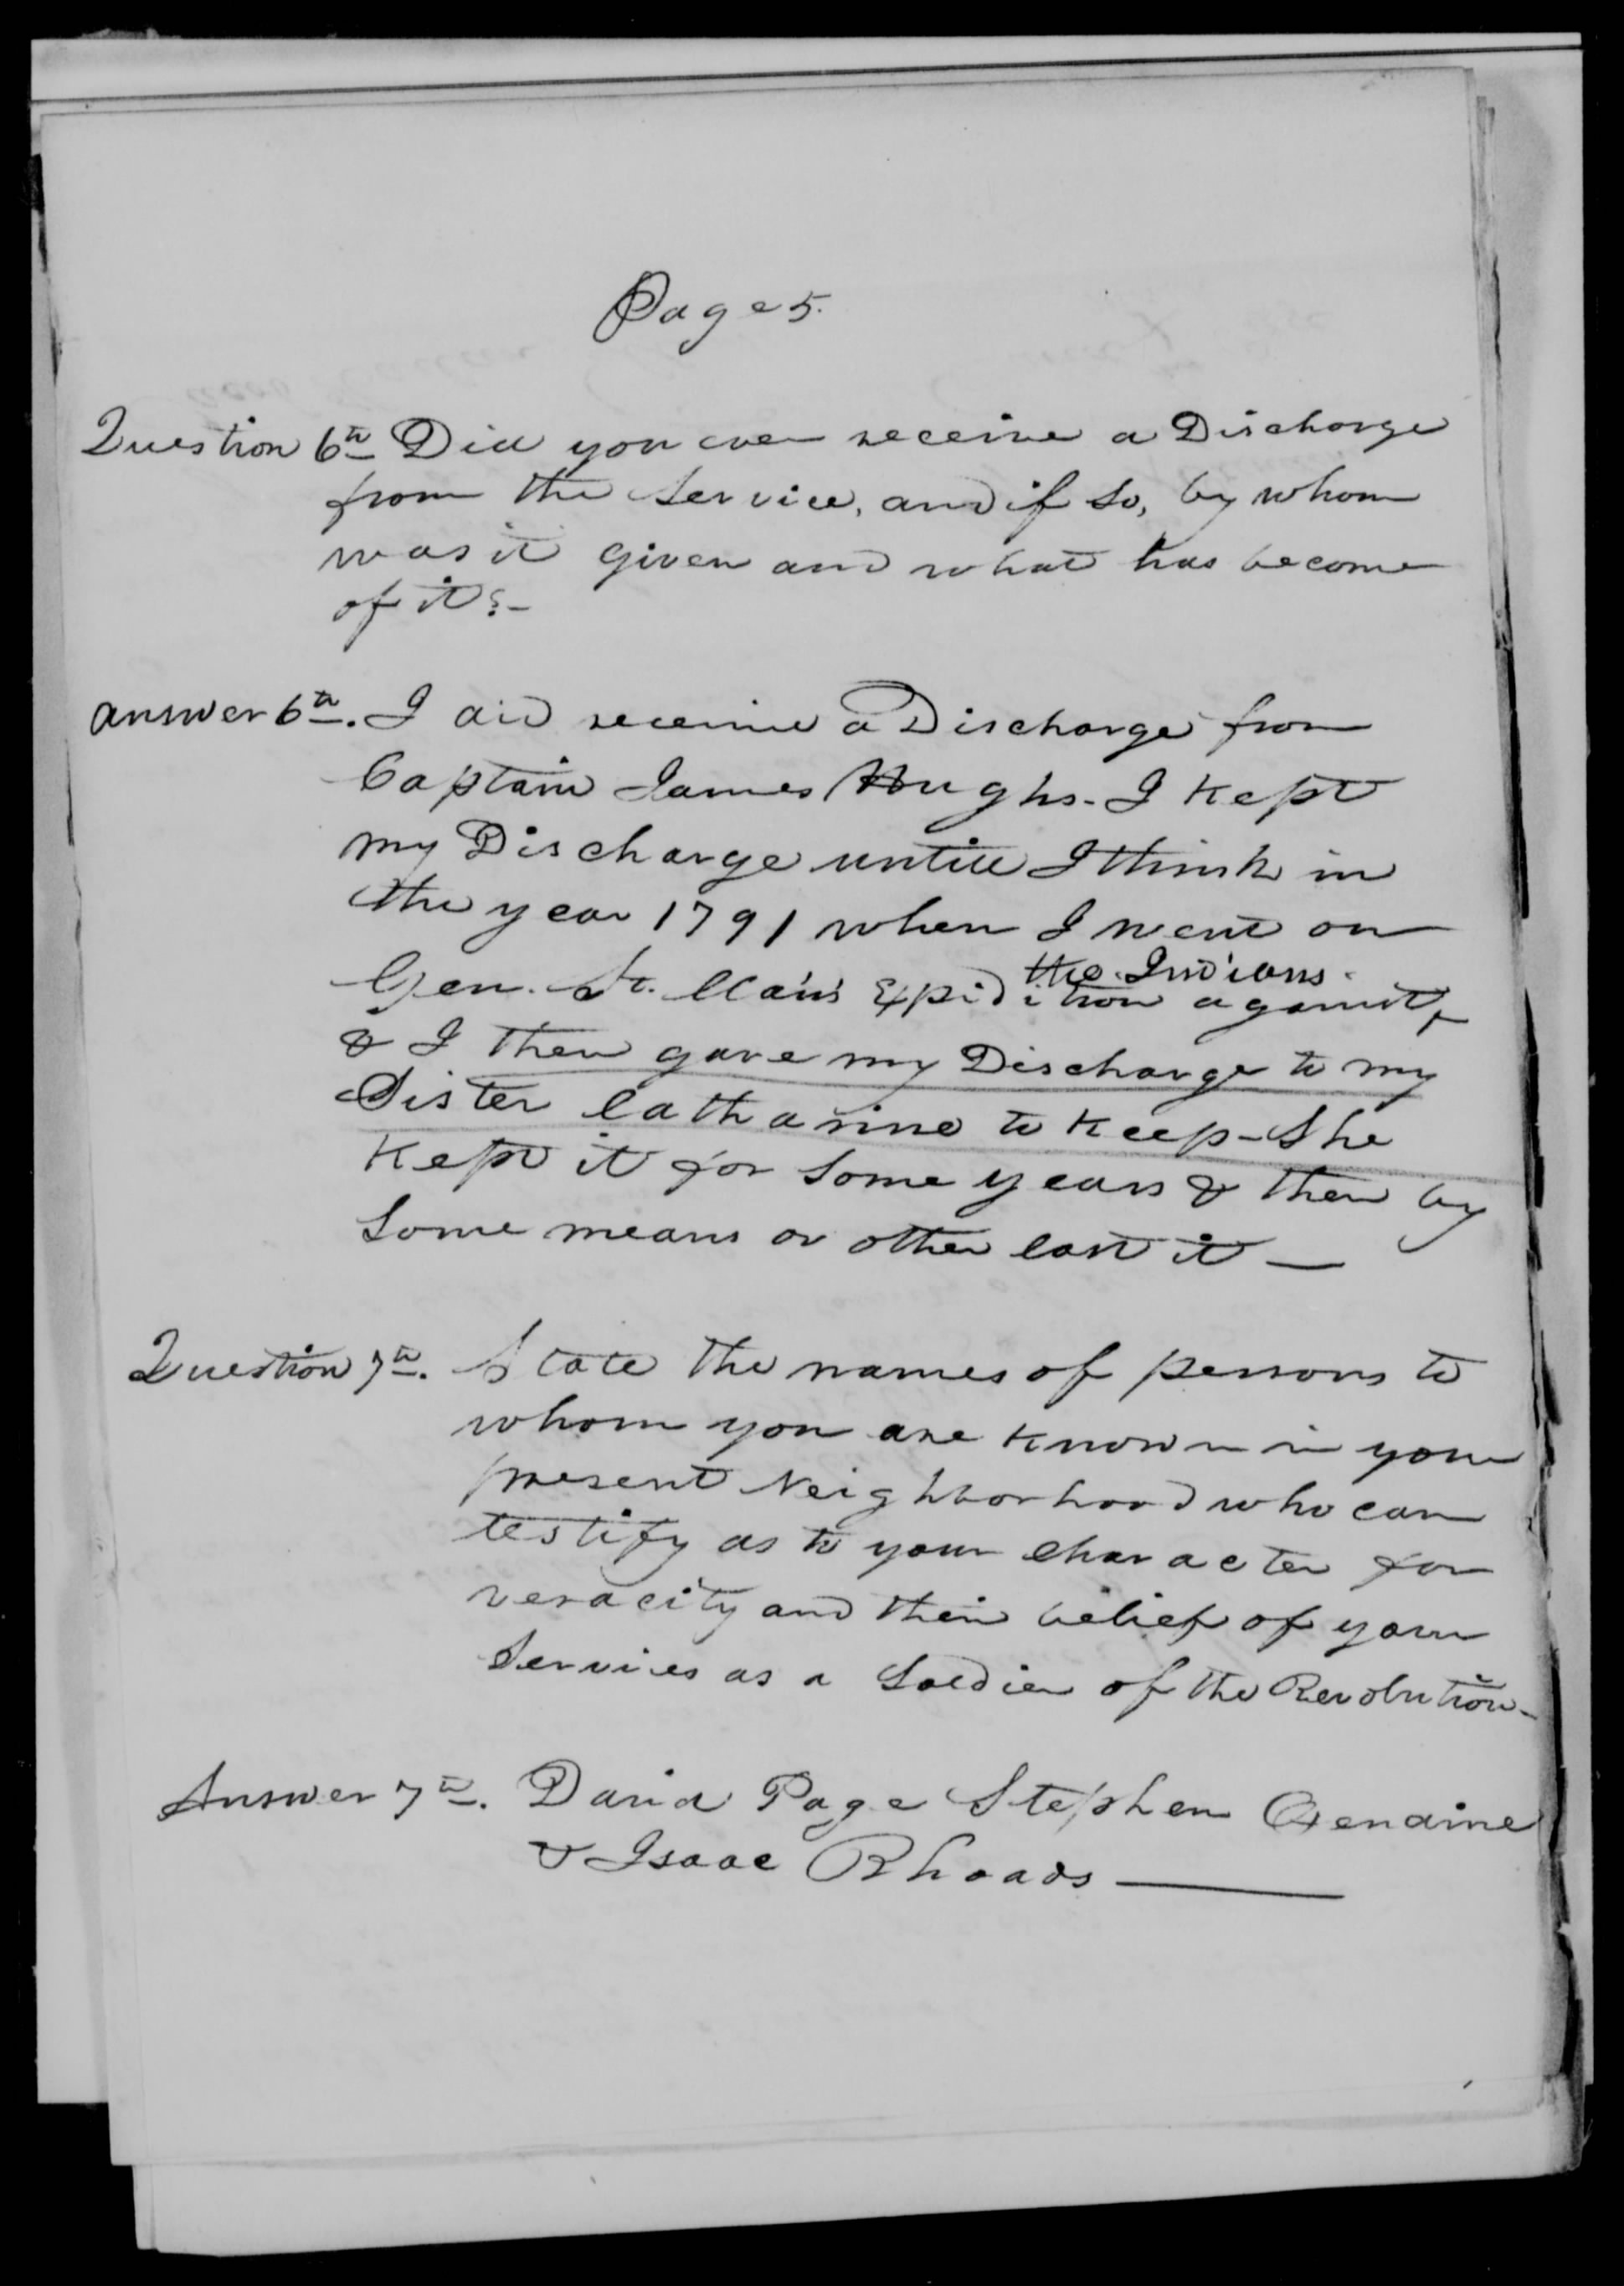 Page 5.
Question 6th Did you ever receive a Discharge
from the Service, and if So, by whom
was it given and what has become
of it?-
answer 6th. I did receive a Discharge from
Captain James Hughs. I Kept
my Discharge untill I think in
the year 1791 when I went on
the Indians.
Gen. St. Clair's Expidition against ‸
& I then gave my Discharge to my
Sister Catharine to Keep - She
Kept it for Some years & then by
Some means or other lost it —
Question 7th. State the names of persons to
whom you are Known in your
present Neighborhood who can
testify as to your Character for
veracity and their belief of your
Services as a Soldier of the Revolution-
Answer 7th. David Page Stephen
& Isaac Rhoads —